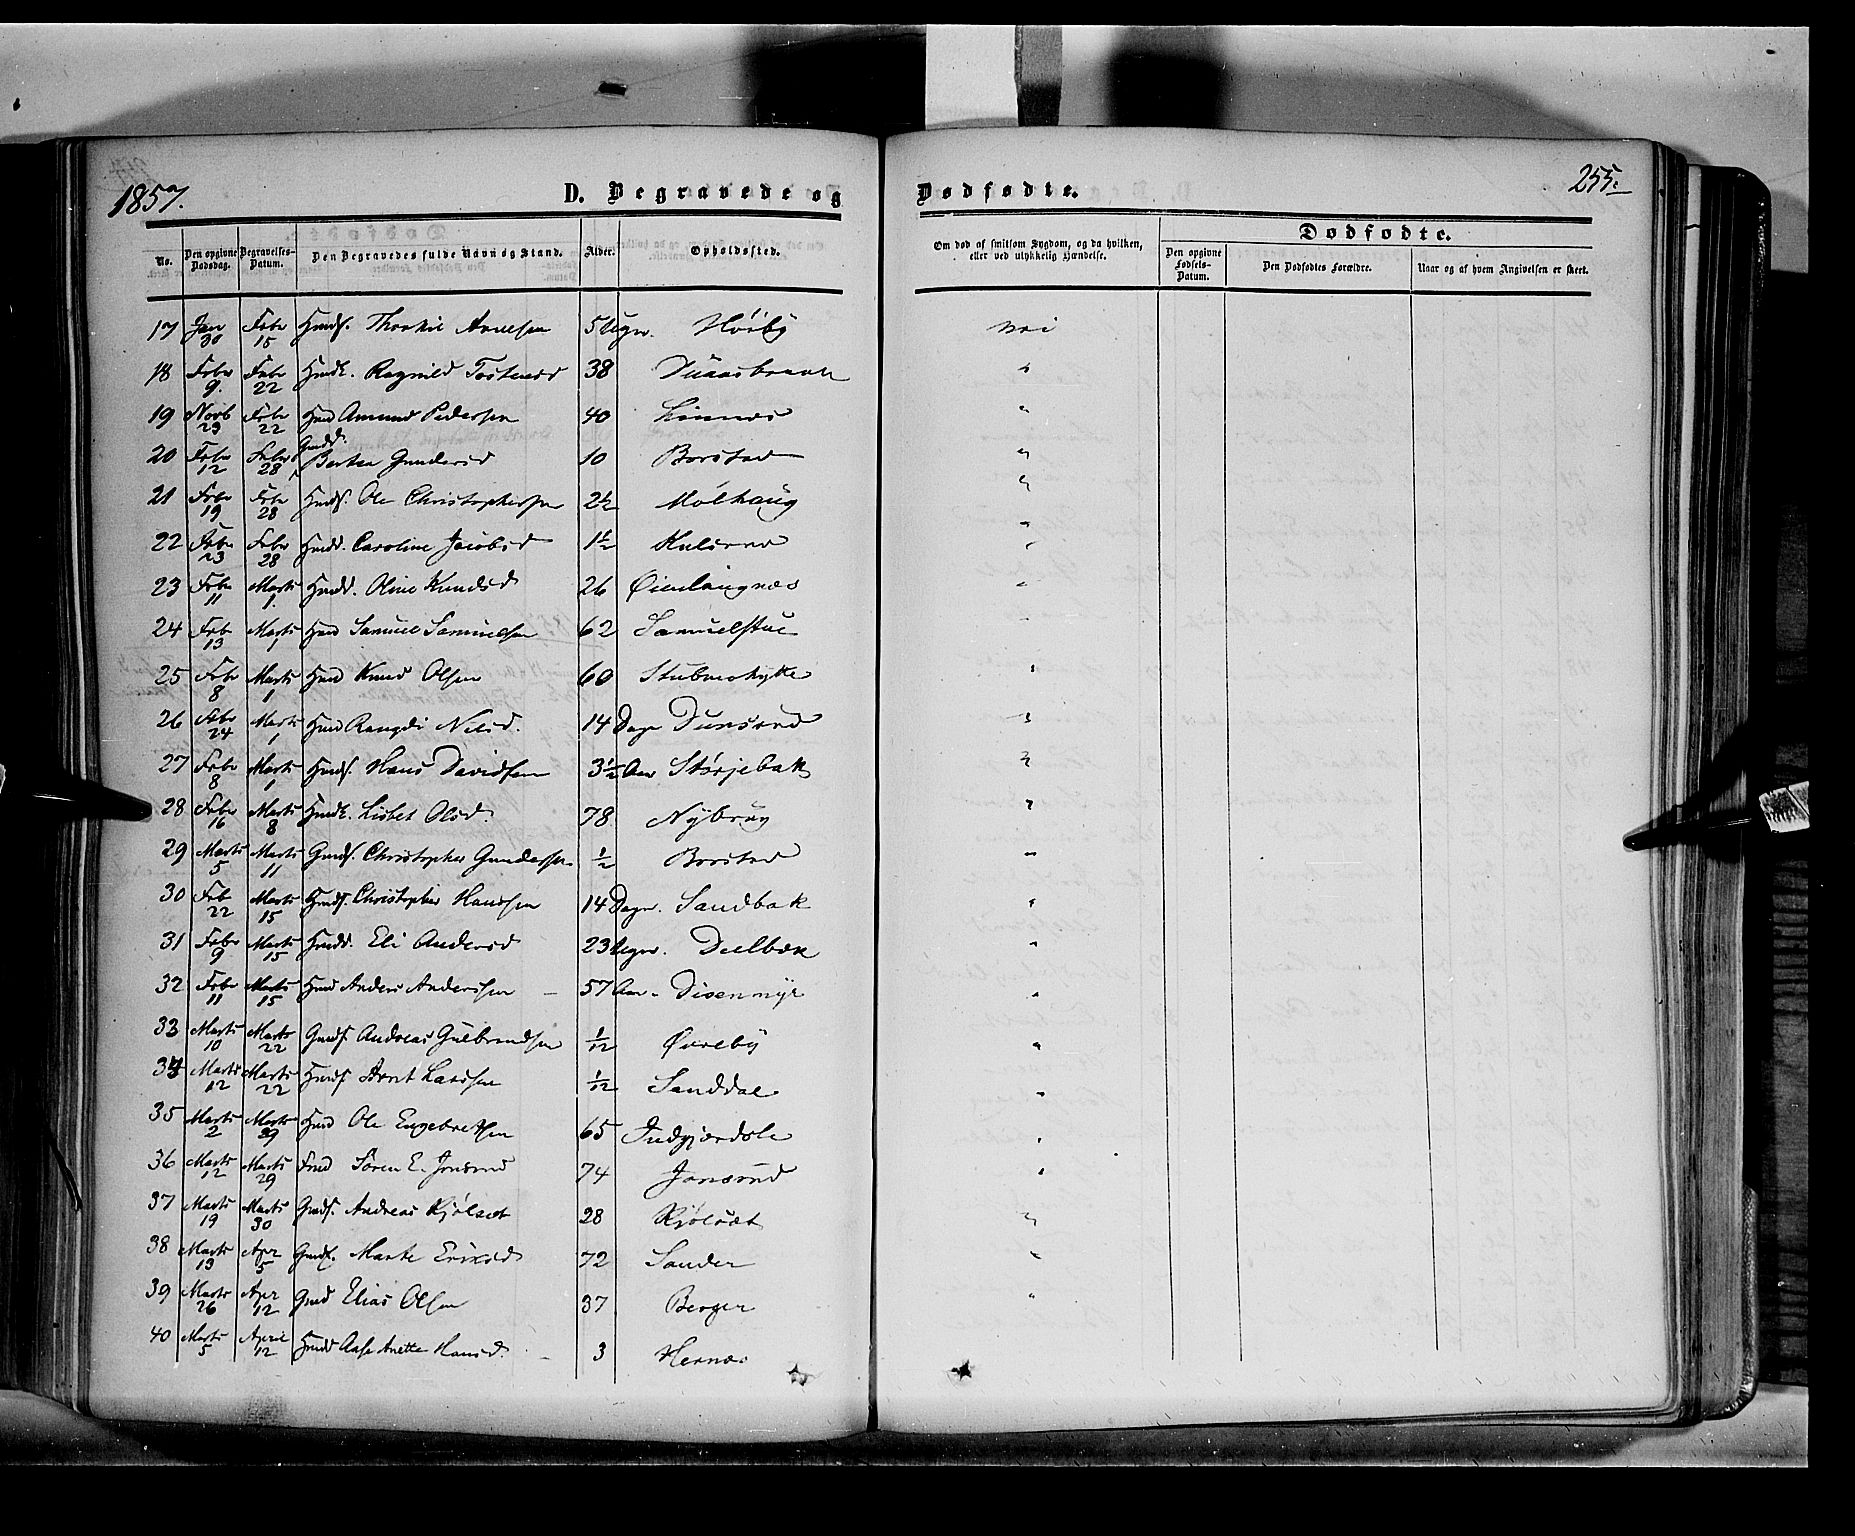 1857.
D. Begravede og
Dødfødte.
255.
No.
Den opgivne Dødsdag.
Begravelses-Datum.
Den Begravedes fulde Navn og Stand.
Alder.
Opholdssted.
Om død af smitsom Sygdom, og da hvilken, eller ved ulykkelig Hændelse.
Dødfødte.
Den opgivne Fødsels-Datum.
Den Dødfødtes Forældre.
Naar og af hvem Angivelsen er skeet.
17 Jan 30 Febr 15 Huusf. Thorkil Arnesen 5 Uger. Høiby nei
18 Febr 9. Febr 22 Huusk. Ragnild Tostensd 38 "
19 Novb 23 Febr 22 Huusm Amund Pedersen 40 Linnæs "
20 Febr 12 Febr 28 Gaardd. Berthe Gundersd 10 Borstad "
21 Febr 19 Febr 28 Huusf. Ole Christophersen 2½ Mølhaug "
22 Febr 23 Febr 28 Huusd. Caroline Jacobsd 1½ "
23 Febr 11 Marts 1. Huusd. Oline Knudsd 26 Øienlaugnæs "
24 Feb 13 Marts 1 Huusm Samuel Samuelsen 62 Samuelstue "
25 Febr 8 Marts 1 Huusm Knud Olsen 60 Stubneshytte "
26 Febr 24 Marts 1 Nilsd. 14 Dage "
27 Febr 8 Marts 1 Huusf. Hans Davidsen 3½ Aar Størjebak "
28 Febr 16 Marts 8 Huusk. Lisbet Olsd. 78 Nybrug "
29 Marts 5 Marts 11 Gaardf. Christopher Gundersen ½ Borstad "
30 Feb 22 Marts 15 Huusf. Christopher Hansen 14 Dage. Sandbak "
31 Febr 9 Marts 15 Huusd. Eli Andersd 23 Uger. Delbæk "
32 Febr 11 Marts 15 Huusm Anders Andersen 57 Aar Disenmyr "
33 Marts 10 Marts 22 Gaardf. Andreas Gulbrandsen 1/12 Øvreby "
34 Marts 12 Marts 22 Huusf Arnt Larsen 1/12 Sanddal "
35 Marts 2 Marts 29 Huusm Ole Engebretsen 65 Indgjærdsle "
36 Marts 12 Marts 29 Søren E. Jonsrud 74 Jonsrud "
37 Marts 19 Marts 30 Gaardf. Andreas Kjølsæt 28 Kjølsæt "
38 Marts 13 Apr 5 Gaardk. Marthe Eriksd 72 Sander "
39 Marts 26 Apr 12 Gaardm Elias Olsen 37 Berger "
40 Marts 5 April 12 Huusd Aase Anette Hansd. 3 Hernæs